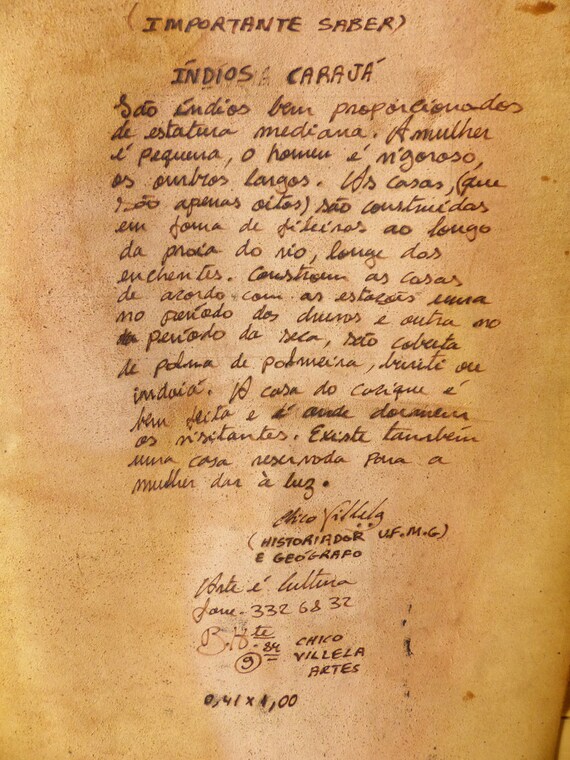 (IMPORTANTE SABER)
ÍNDIOS CARAJÁ
São índios bem proporcionados
de estatura mediana. A mulher
é pequena, o homem é vigoroso,
os ombros largos. As casas, (que
são apenas oitos) são construídas
em forma de fileiras ao longo
da praia do rio, longe das
enchentes. Constroem as casas
de acordo com as estações uma
no período das chuvas e outra no
período da seca, são coberta
de palma de palmeira, buriti ou
indaiá. A casa do cacique é
bem feita e é onde dormem
os visitantes. Existe também
uma casa reservada para a
mulher dar à luz.
Chico Villela
(HISTORIADOR U.F.M.G)
E GEÓGRAFO
Arte é Cultura
fone - 332 68 32
B. Hte
- 84 CHICO
9 VILLELA
ARTES
0,41 x 1,00